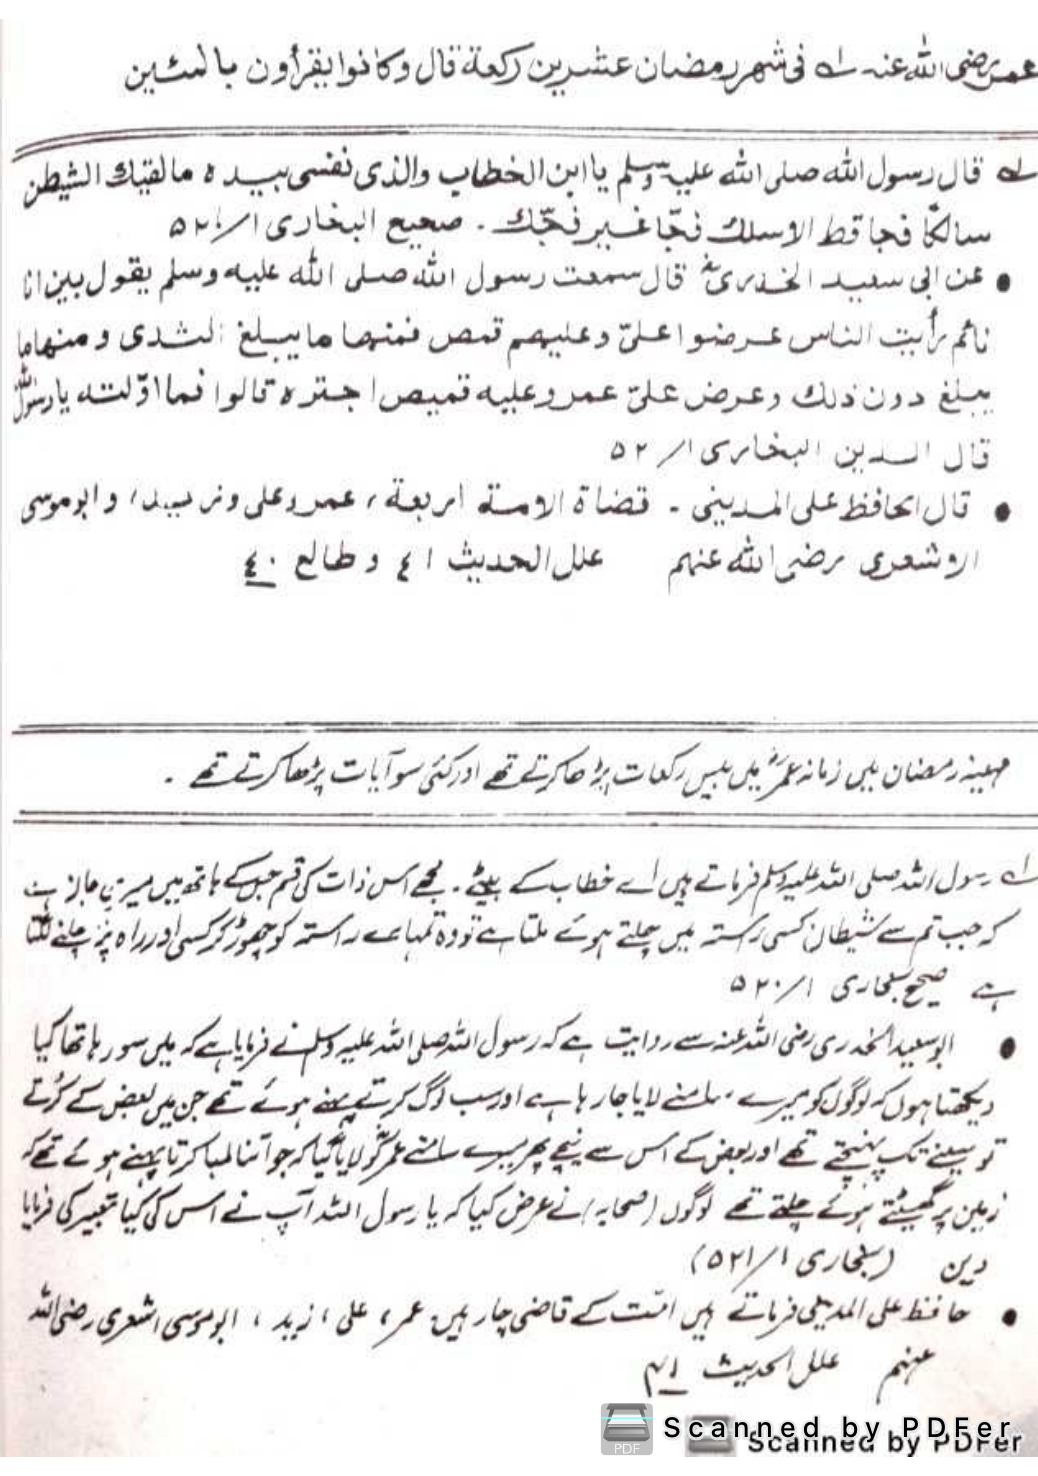 عمر رضی الله عنه لے فی شهر رمضان عشرین رکعة قال و کانوا یقرأون بالمئین
لے قال رسول الله صلی الله علیہ وسلم یا ابن الخطاب والذی نفسی بیده مالقیك الشیطن
سالکًا فجا قط الاسلك فجّا غیر فجّك ۔ صحیح البخاری ۱/۵۲۰
• عن ابی سعید الخدری رض قال سمعت رسول الله صلی الله علیه وسلم یقول بین انا
نائم رأیت الناس عرضوا علیّ و علیهم قمص فمنها ما یبلغ الثدی و منها ما
یبلغ دون ذلك وعرض علیّ عمر وعلیه قمیص اجتره قالوا فما اوّلته یا رسول الله
قال الدین البخاری ۱/۵۲
• قال الحافظ علی المدینی ۔ قضاة الامة اربعة، عمر وعلی وزید، و ابو موسی
الاشعری رضی الله عنهم علل الحدیث ٤١ و طالع ٤٠
مہینہ رمضان میں زمانہ عمرؓ میں بیس رکعات پڑھا کرتے تھے اور کئی سو آیات پڑھا کرتے تھے ۔
لے رسول اللہ صلی اللہ علیہ وسلم فرماتے ہیں اے خطاب کے بیٹے ۔ مجھے اس ذات کی قسم جس کے ہاتھ میں میری جان ہے
کہ جب تم سے شیطان کسی راستہ میں چلتے ہوئے ملتا ہے تو وہ تمہارے راستہ کو چھوڑ کر کسی اور راہ پر چلنے لگتا
ہے صحیح بخاری ۱/۵۲۰
• ابو سعید الخدری رضی اللہ عنہ سے روایت ہے کہ رسول اللہ صلی اللہ علیہ وسلم نے فرمایا ہے کہ میں سو رہا تھا کیا
دیکھتا ہوں کہ لوگوں کو میرے سامنے لایا جا رہا ہے اور سب لوگ کرتے پہنے ہوئے تھے جن میں بعض کے کُرتے
تو سینے تک پہنچتے تھے اور بعض کے اس سے نیچے پھر میرے سامنے عمرؓ کو لایا گیا کہ جو اتنا لمبا کرتا پہنے ہوئے تھے کہ
زمین پر گھسیٹتے ہوئے چلتے تھے لوگوں (صحابہ) نے عرض کیا کہ یا رسول اللہ آپ نے اس کی کیا تعبیر کی فرمایا
دین (بخاری ۱/۵۲۱)
• حافظ علی المدینی فرماتے ہیں امّت کے قاضی چار ہیں عمر، علی، زید، ابو موسی اشعری رضی اللہ
عنہم علل الحدیث ۴۱
Scanned by PDFer
Scanned by PDFer
PDF